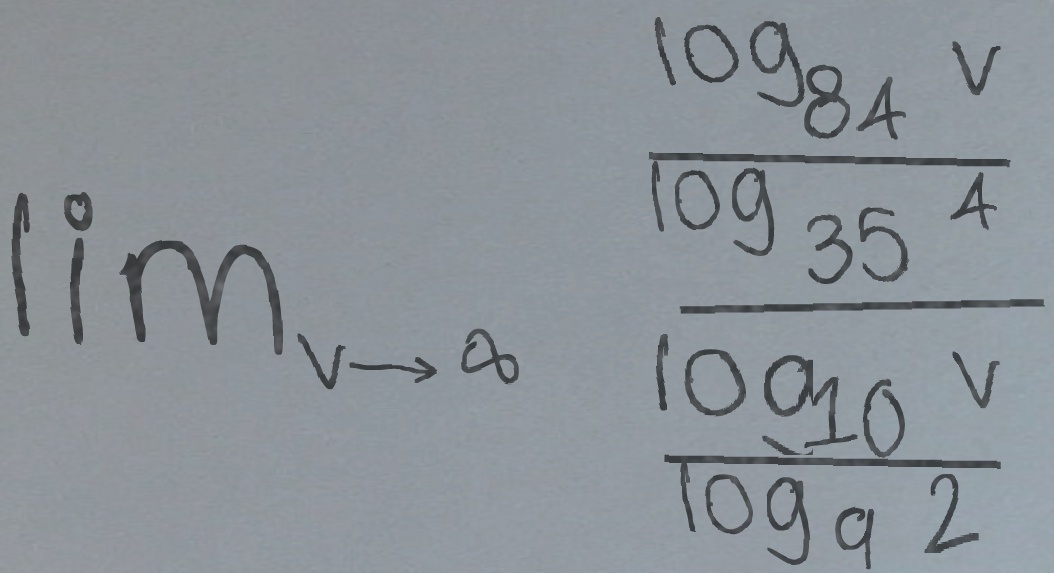 lim v→∞
log 84 v
log 35 4
log 10 v
log 9 2